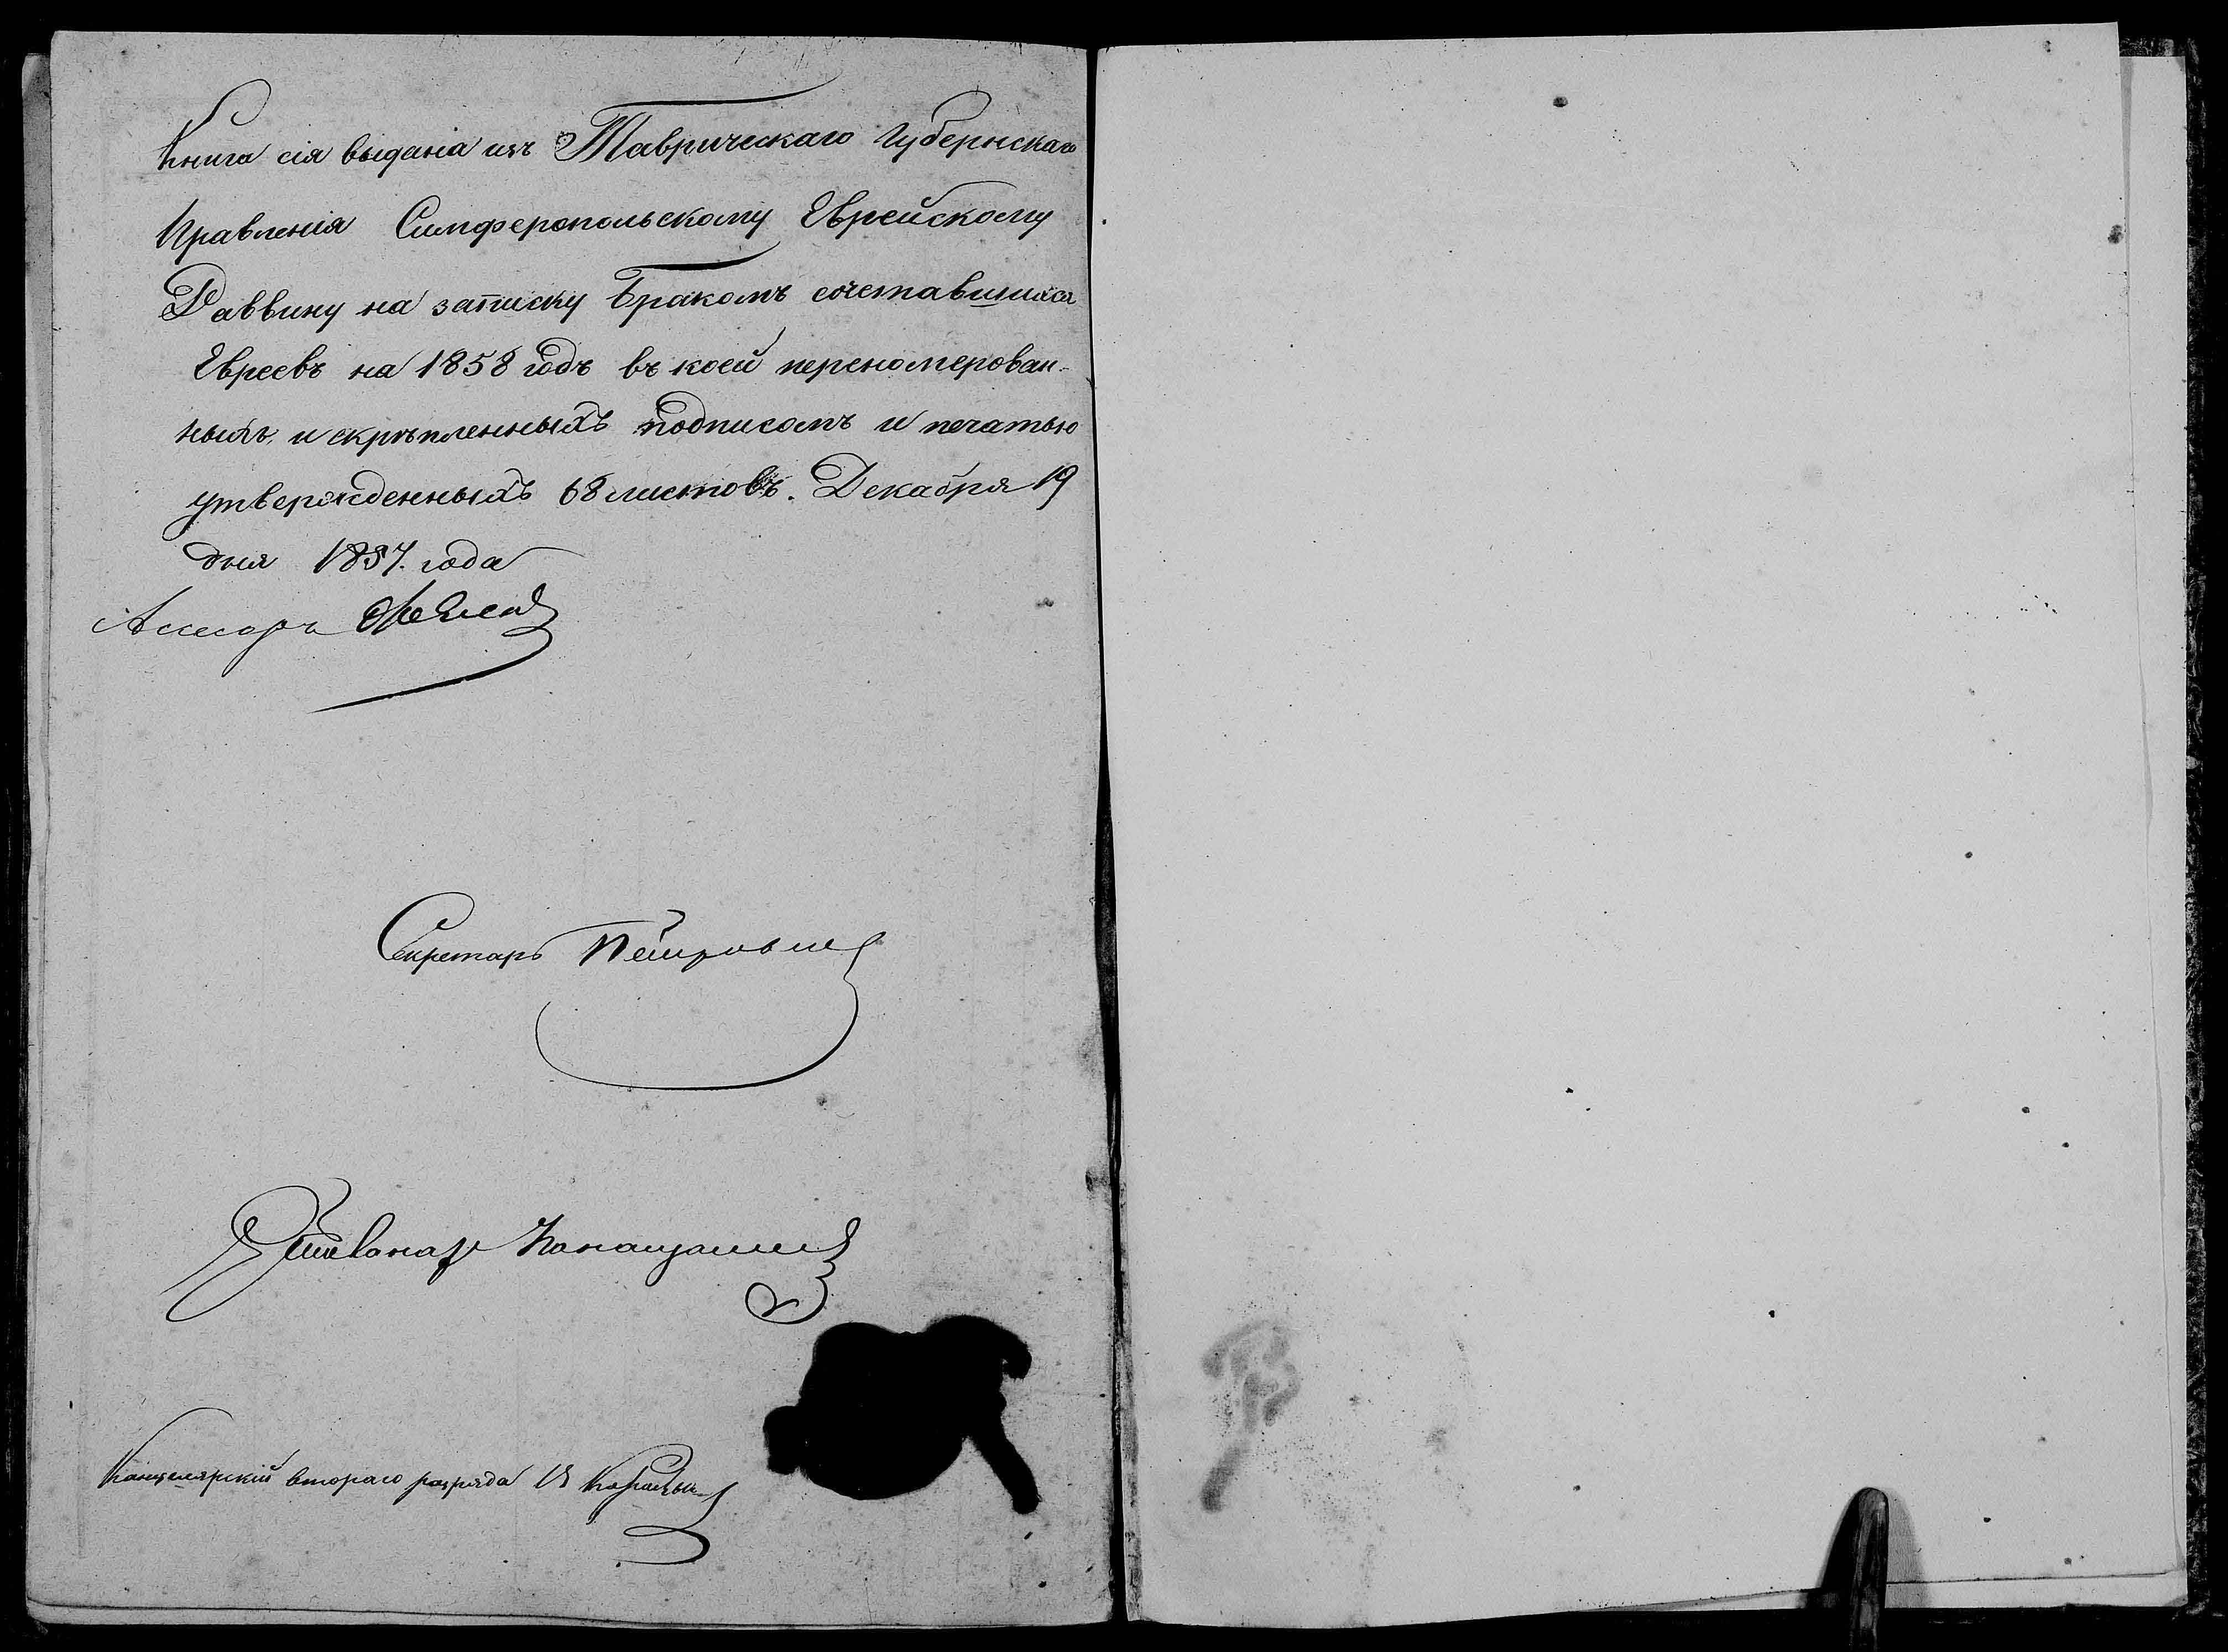 Книга сія выдана изъ Таврическаго Губернскаго
Правленія Симферопольскому Еврейскому
Раввину на записку бракомъ сочетавшихся
Евреевъ на 1858 годъ въ коей переномерован-
ныхъ и скрѣпленныхъ подписомъ и печатью
утвержденныхъ 68 листовъ. Декабря 19
дня 1857. года
Асесоръ
Секретарь Петровскій
Канцелярскій втораго разряда